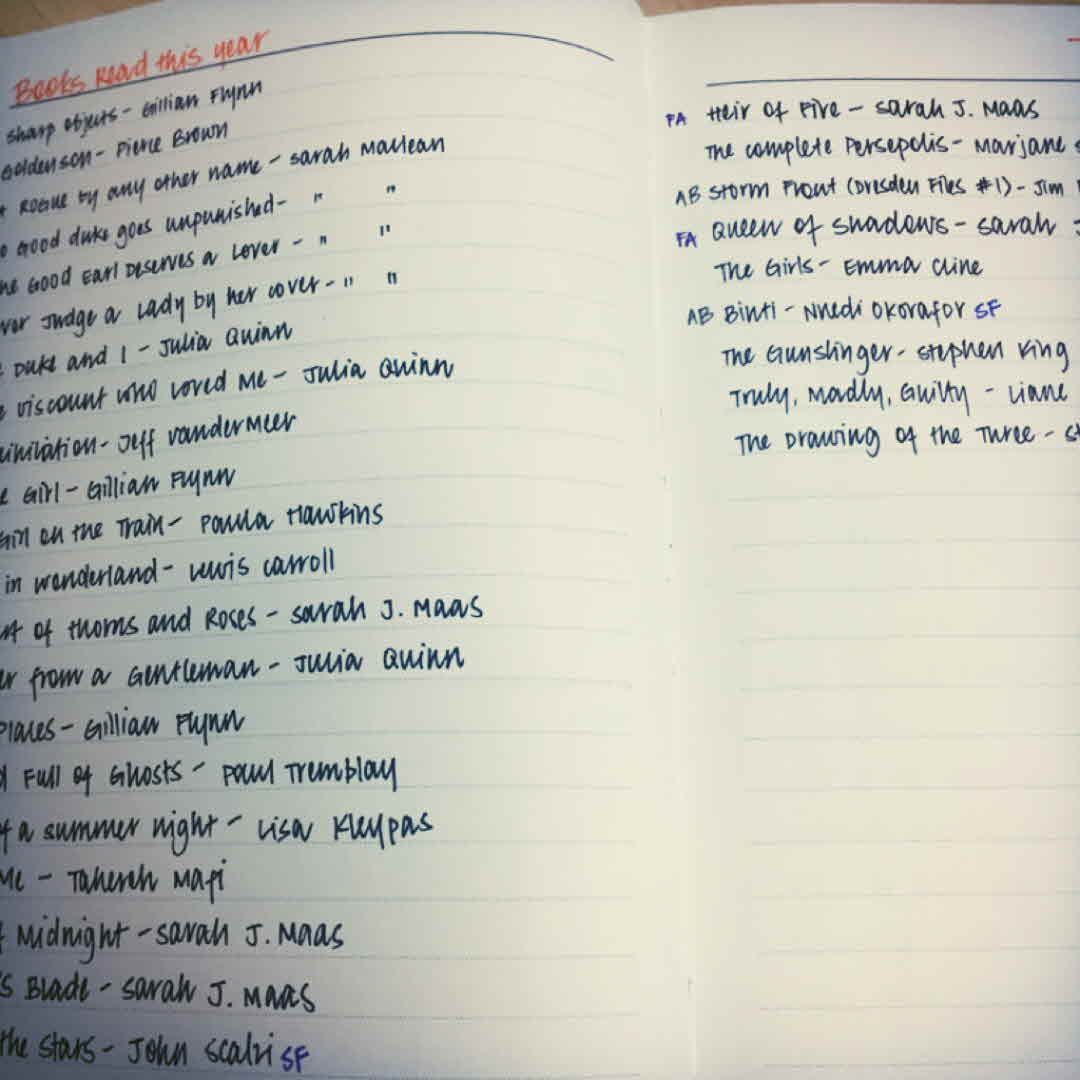 Books Read this year
Sharp Objects - Gillian Flynn
Golden Son - Pierce Brown
Rogue by any other name - Sarah Maclean
Good duke goes unpunished - " "
Good Earl Deserves a Lover - " "
ver Judge a Lady by her cover - " "
Duke and I - Julia Quinn
Viscount who loved Me - Julia Quinn
nihilation - Jeff VanderMeer
Girl - Gillian Flynn
Girl on the Train - Paula Hawkins
in wonderland - Lewis Carroll
of Thorns and Roses - Sarah J. Maas
er from a Gentleman - Julia Quinn
Places - Gillian Flynn
Full of Ghosts - Paul Tremblay
a summer night - Lisa Kleypas
Me - Tahereh Mafi
Midnight - Sarah J. Maas
s Blade - Sarah J. Maas
the stars - John Scalzi SF
FA Heir of Fire - Sarah J. Maas
The Complete Persepolis - Marjane
AB Storm Front (Dresden Files #1) - Jim
FA Queen of Shadows - Sarah J
The Girls - Emma Cline
AB Binti - Nnedi Okorafor SF
The Gunslinger - Stephen King
Truly, Madly, Guilty - Liane
The Drawing of the Three - St